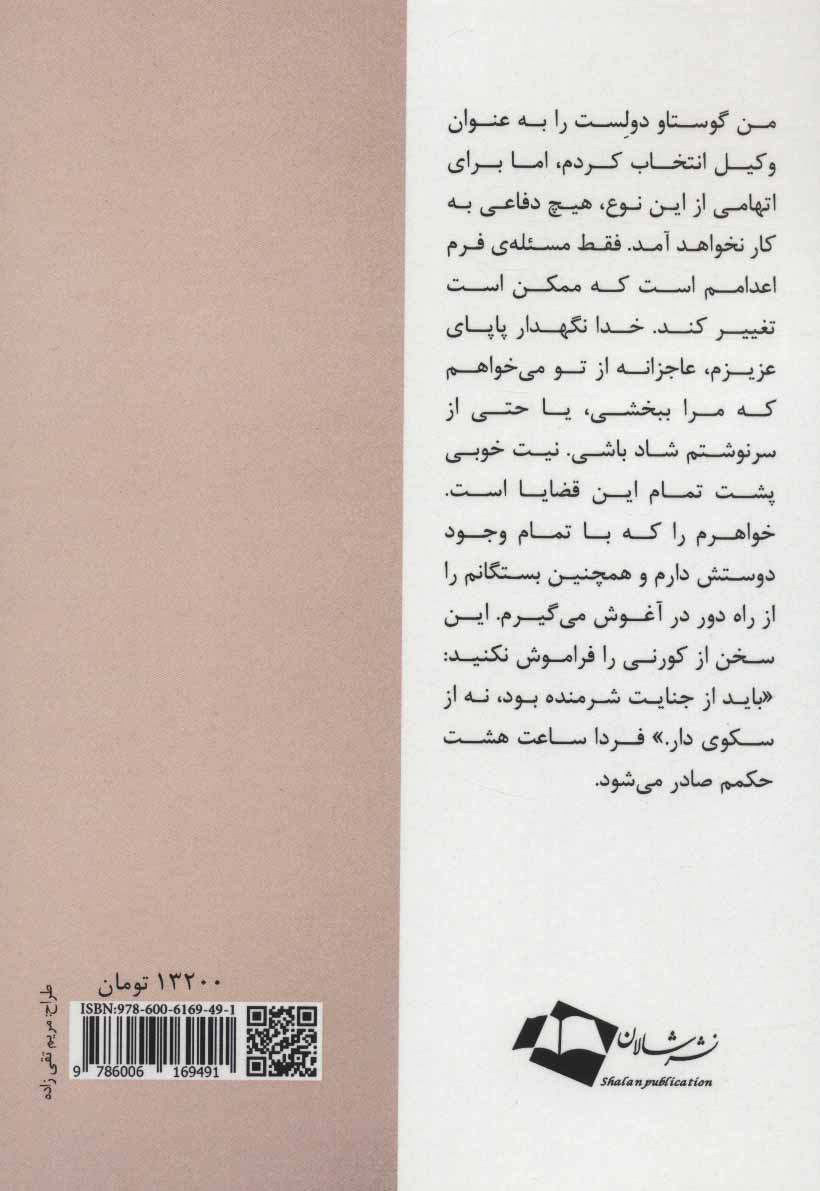 من گوستاو دولِست را به عنوان
وکیل انتخاب کردم، اما برای
اتهامی از این نوع، هیچ دفاعی به
کار نخواهد آمد. فقط مسئله‌ی فرم
اعدامم است که ممکن است
تغییر کند. خدا نگهدار پاپای
عزیزم، عاجزانه از تو می‌خواهم
که مرا ببخشی، یا حتی از
سرنوشتم شاد باشی. نیت خوبی
پشت تمام این قضایا است.
خواهرم را که با تمام وجود
دوستش دارم و همچنین بستگانم را
از راه دور در آغوش می‌گیرم. این
سخن از کورنی را فراموش نکنید:
«باید از جنایت شرمنده بود، نه از
سکوی دار.» فردا ساعت هشت
حکمم صادر می‌شود.
نشر شالان
Shalan publication
۱۳۲۰۰ تومان
ISBN:978-600-6169-49-1
9 786006 169491
طراح: مریم تقی زاده